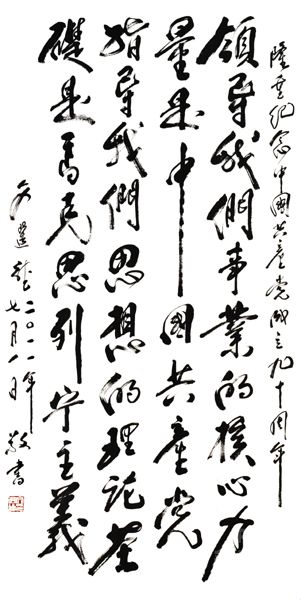 隆重纪念中國共產党成立九十周年
領导我們事業的核心力
量是中國共產党
指导我們思想的理论基
礎是馬克思列宁主義
二〇一一年
七月八日
敬書